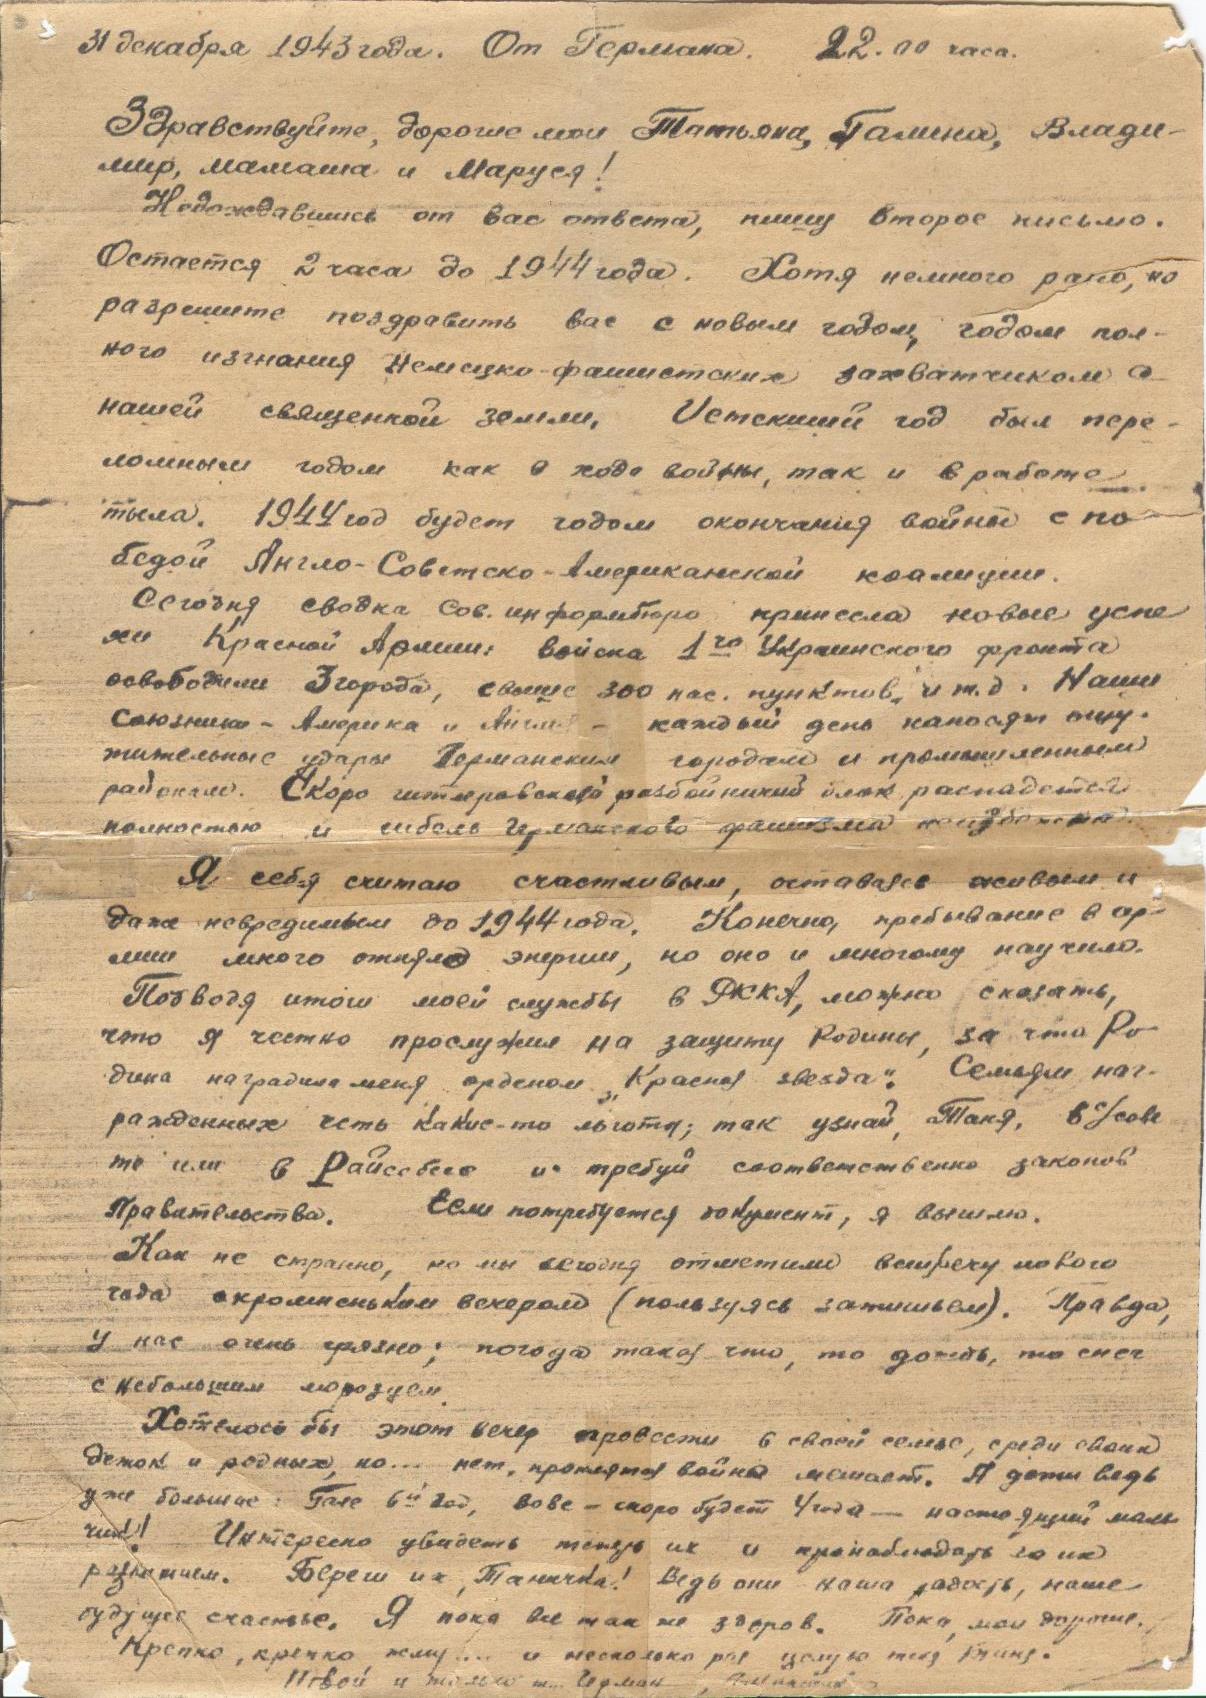 31 декабря 1943 года. От Германа. 22.00 часа.
Здравствуйте, дорогие мои Татьяна, Галина, Влади-
мир, мамаша и Маруся!
Недождавшись от вас ответа, пишу второе письмо.
Остается 2 часа до 1944 года. Хотя немного рано, но
разрешите поздравить вас с новым годом, годом пол-
ного изгнания немецко-фашистских захватчиком с
нашей священной земли. Истекший год был пере-
ломным годом как в ходе войны, так и в работе
тыла. 1944 год будет годом окончания войны с по
бедой Англо-Советско-Американской коалиции.
Сегодня сводка Сов. информбюро принесла новые успе
хи Красной Армии: войска 1го Украинского фронта
освободили 3 города, свыше 300 нас. пунктов и т.д. Наши
союзники - Америка и Англия - каждый день наносят ощу-
тительные удары Германским городам и промышленным
районам. Скоро гитлеровский разбойничий блок распадется
полностью и гибель германского фашизма неизбежна.
Я себя считаю счастливым, оставаясь живым и
даже невредимым до 1944 года. Конечно, пребывание в ар-
мии много отняло энергии, но оно и многому научило.
Подводя итоги моей службы в РККА, можно сказать,
что я честно прослужил на защиту Родины, за что Ро
дина наградила меня орденом „Красная звезда". Семьям наг-
ражденных есть какие-то льготы; так узнай, Таня, в
те или в Райсобесе и требуй соответственно законов
Правительства. Если потребуется документ, я вышлю.
Как не странно, но мы сегодня отметили встречу нового
года скромненьким вечером (пользуясь затишьем). Правда,
у нас очень грязно; погода такая что, то дождь, то снег
с небольшим морозцем.
Хотелось бы этот вечер провести в своей семье, среди своих
деток и родных, но... нет, проклятая война мешает. А дети ведь
уже большие: Гале 6й год, Вове - скоро будет 4 года - настоящий маль
чик! Интересно увидеть теперь их и пронаблюдать за их
развитием. Береги их, Танечка! Ведь они наша радость, наше
будущее счастье. Я пока все так же здоров. Пока, мои дорогие.
Крепко, крепко жму... и несколько раз целую тебя
Твой и только Герман